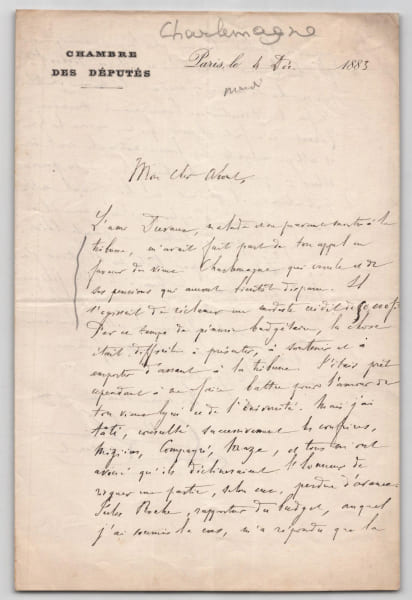 Charlemagne
CHAMBRE
DES DÉPUTÉS
Paris, le 4 Dé 1883
mardi
Mon cher
L'ami malade et ne pouvant monter à la
tribune, m'avait fait part de ton appel en
faveur du vieux Charlemagne qui et de
ses pensions qui auront bientôt disparu. Il
s'agissait de réclamer un modeste crédit de
Par ce temps de pénurie budgétaire, la chose
était difficile à présenter, à soutenir et à
emporter d'assaut à la tribune. J'étais prêt
cependant à me faire battre pour l'amour de
ton vieux lycée et de l'Université. Mais j'ai
tâté, consulté successivement les confrères,
Compayré, et tous m'ont
avoué qu'ils déclineraient l'honneur de
une partie, selon eux, perdue d'avance.
Jules Roche, rapporteur du budget, auquel
j'ai soumis le cas, m'a répondu que la